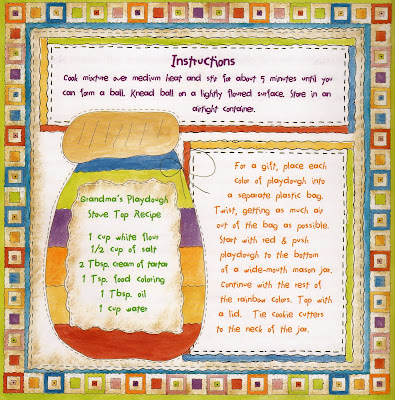 Instructions
Cook mixture over medium heat and stir for about 5 minutes until you
can form a ball. Knead ball on a lightly floured surface. Store in an
airtight container.
Grandma's Playdough
Stove Top Recipe
1 cup white flour
1/2 cup of salt
2 Tbsp. cream of tartar
1 Tsp. food coloring
1 Tbsp. oil
1 cup water
For a gift, place each
color of playdough into
a separate plastic bag.
Twist, getting as much air
out of the bag as possible.
Start with red & push
playdough to the bottom
of a wide-mouth mason jar.
Continue with the rest of
the rainbow colors. Top with
a lid. Tie cookie cutters
to the neck of the jar.